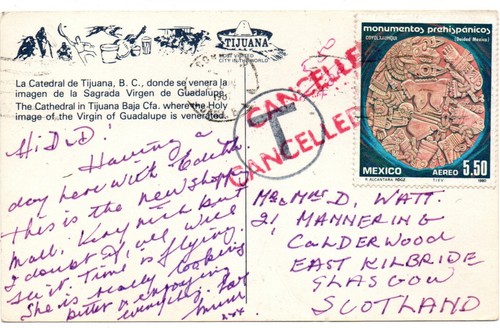 TIJUANA
MOST VISITED
CITY IN THE WORLD
La Catedral de Tijuana, B. C., donde se venera la
imagen de la Sagrada Virgen de Guadalupe.
The Cathedral in Tijuana Baja Cfa. where the Holy
image of the Virgin of Guadalupe is venerated.
Hi D.D!
Having a
day here with Edith.
This is the new shopp
mall. Very nice but
I doubt it, all will
suit. Time is flying.
She is really looking
better & enjoying
everything. Love
CANCELLED
CANCELLED
T
monumentos prehispánicos
COYOLXAUHQUI
(Ciudad México)
MEXICO
AEREO
5.50
R. ALCANTARA HDEZ
TIEV
1980
Mr & Mrs D. WATT.
21 MANNERING
CALDERWOOD
EAST KILBRIDE
GLASGOW
SCOTLAND